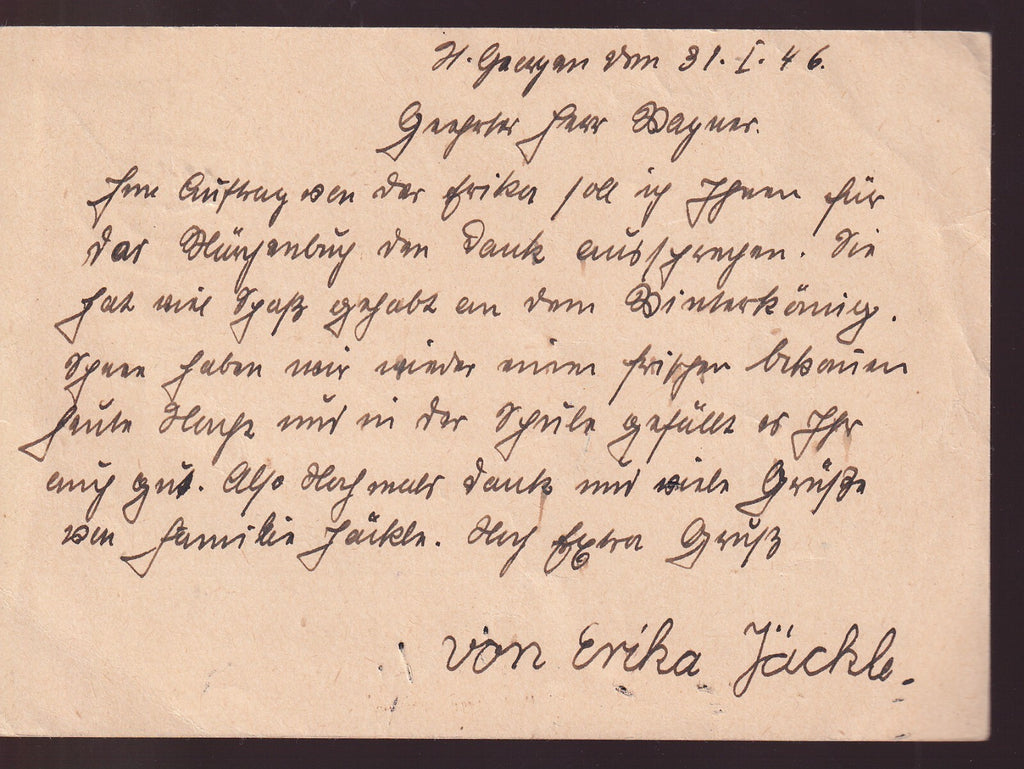 St. Georgen den 31. I. 46.
Geehrter Herr Wagner.
Im Auftrag von der Erika soll ich Ihnen für
das Märchenbuch den Dank aussprechen. Sie
hat viel Spaß gehabt an dem Winterkönig.
Schnee haben wir wieder einen frischen bekommen
heute Nacht und in der Schule gefällt es Ihr
auch gut. Also Nochmals Dank und viele Grüße
von Familie Jäckle. Noch Extra Gruß
von Erika Jäckle.